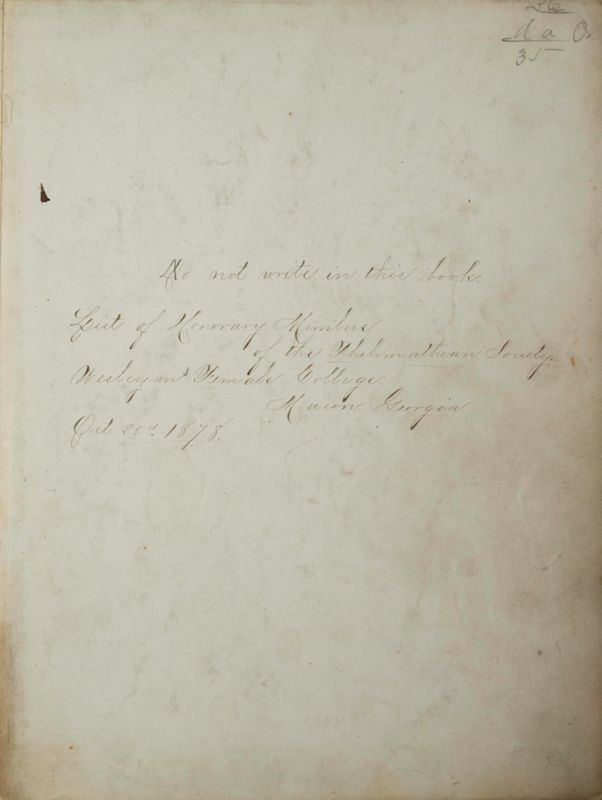 d a
35
Do not write in this book.
List of Honorary Members
of the Philomathean Society
Wesleyan Female College
Macon, Georgia
Oct 25th 1878.